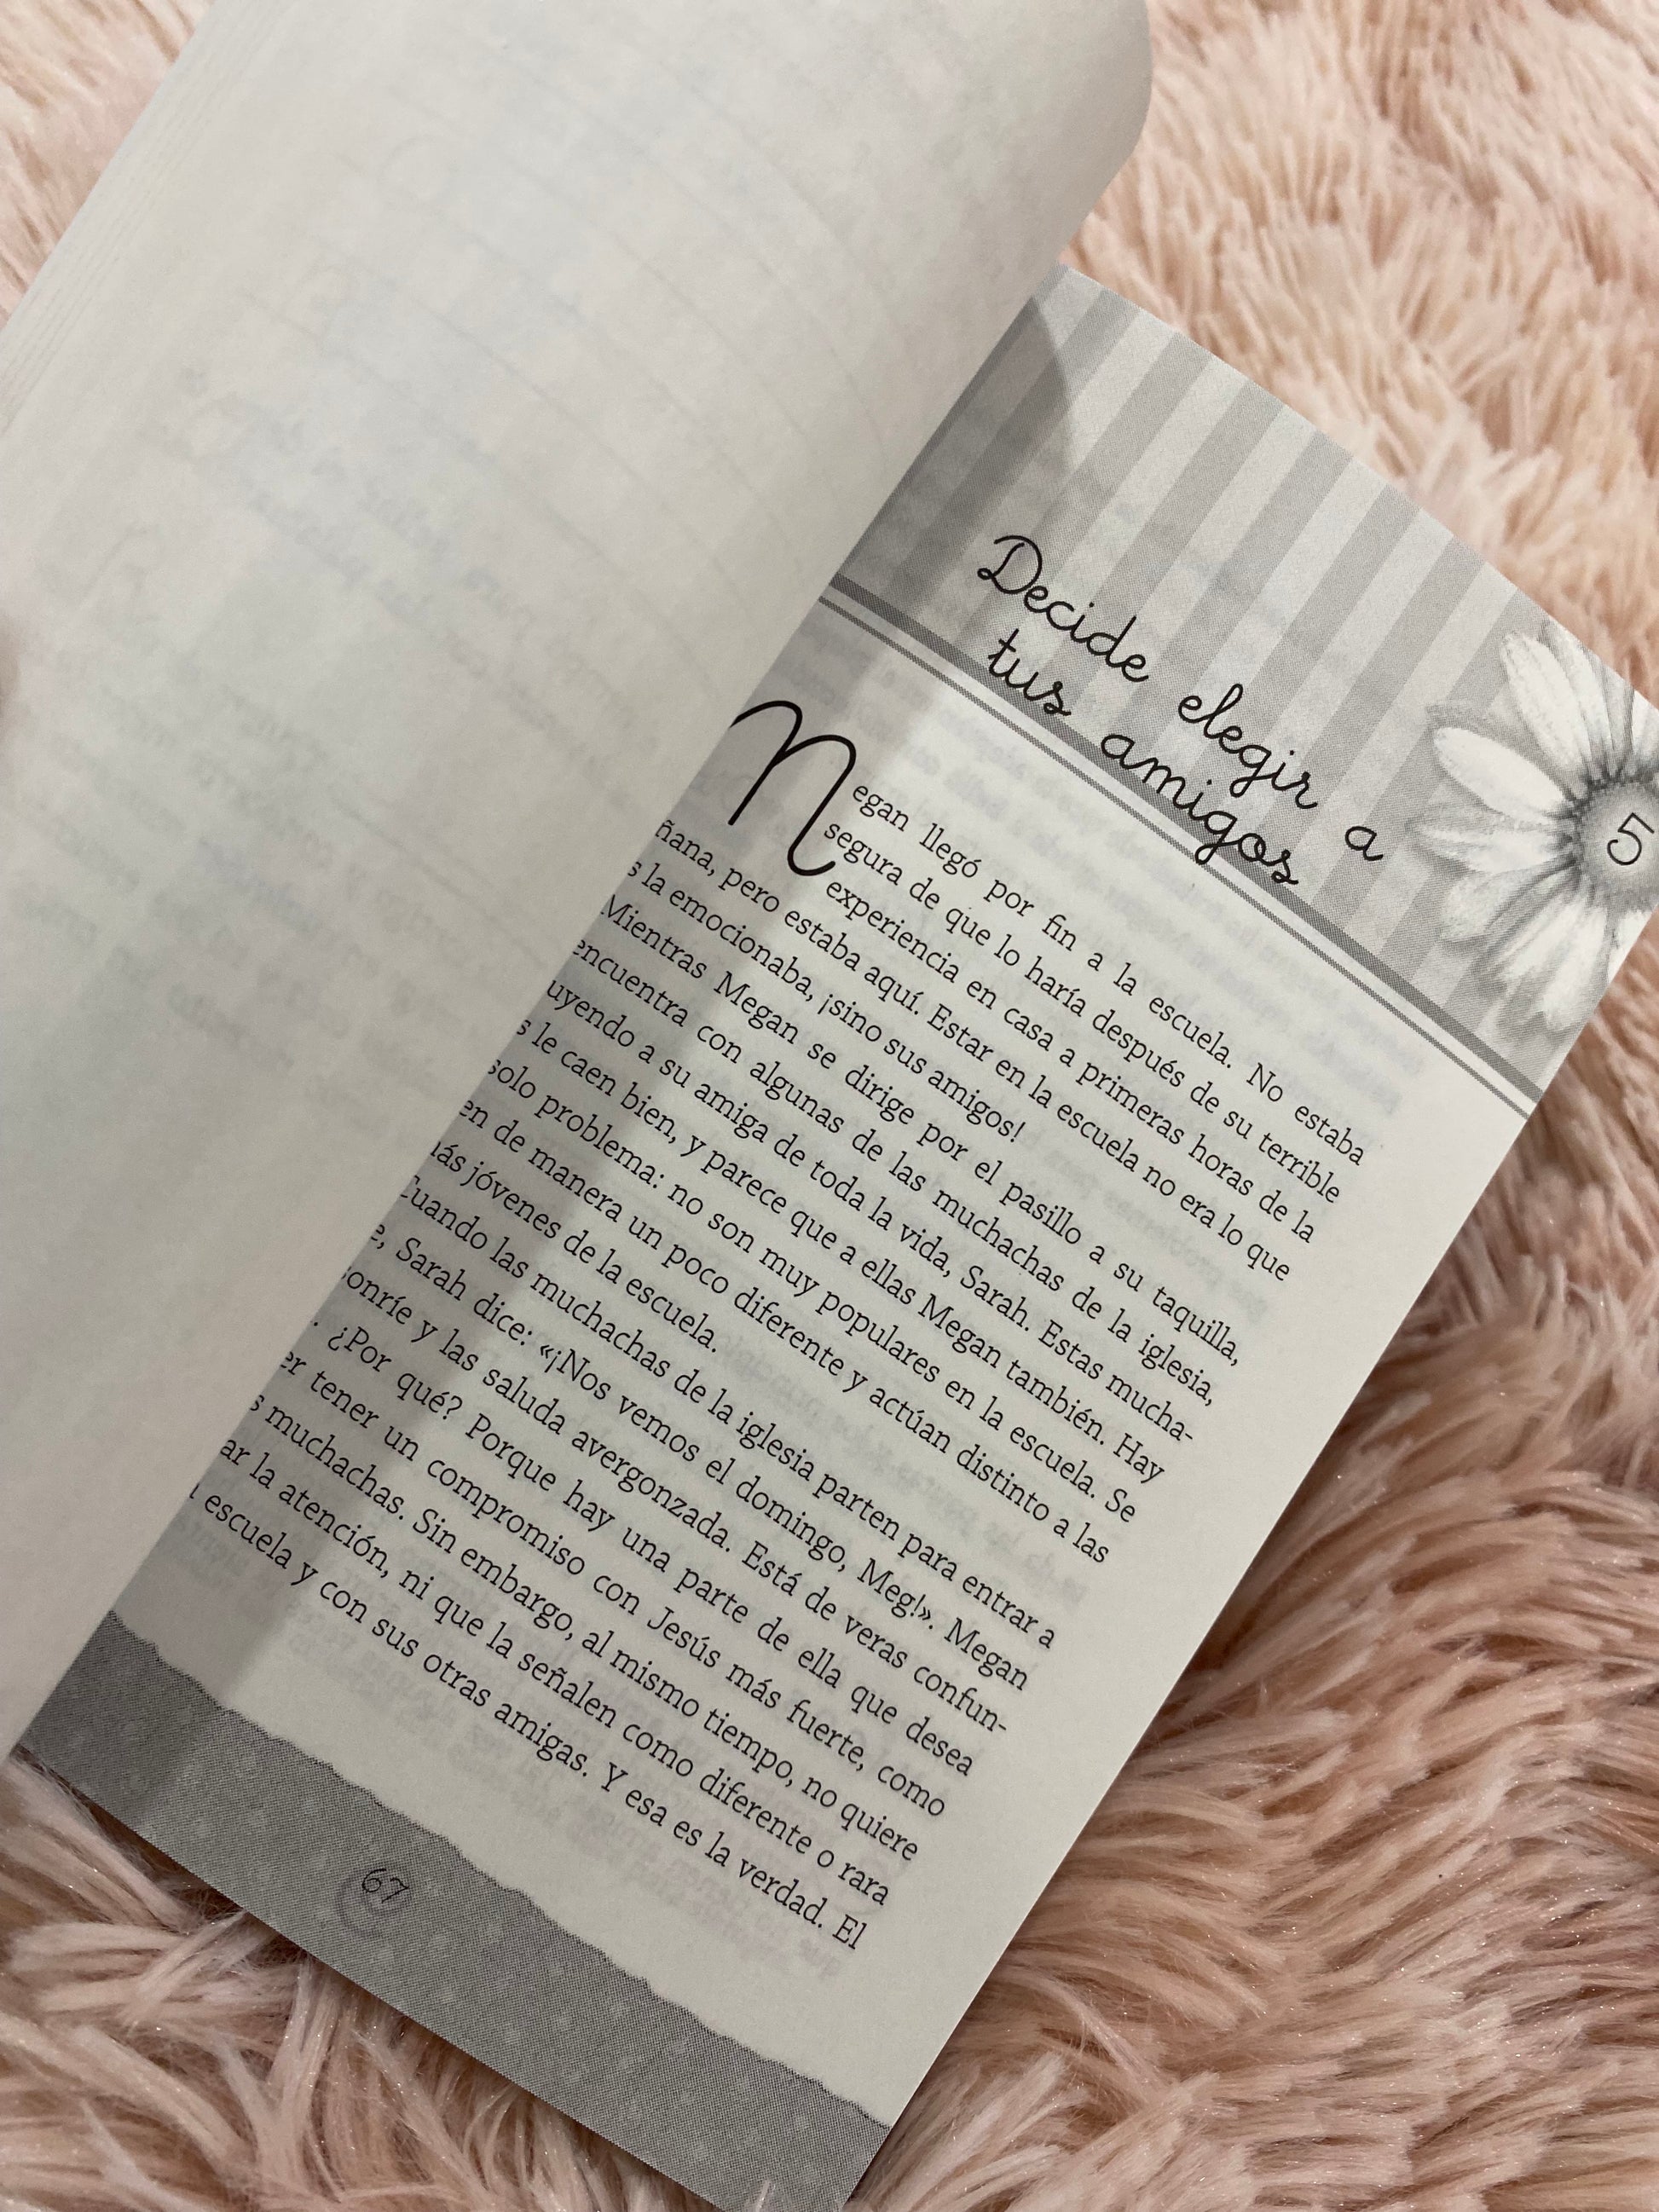 Decide elegir a
tus amigos
5
Megan llegó por fin a la escuela. No estaba
segura de que lo haría después de su terrible
experiencia en casa a primeras horas de la
ñana, pero estaba aquí. Estar en la escuela no era lo que
s la emocionaba, ¡sino sus amigos!
Mientras Megan se dirige por el pasillo a su taquilla,
encuentra con algunas de las muchachas de la iglesia,
uyendo a su amiga de toda la vida, Sarah. Estas mucha-
s le caen bien, y parece que a ellas Megan también. Hay
solo problema: no son muy populares en la escuela. Se
en de manera un poco diferente y actúan distinto a las
más jóvenes de la escuela.
Cuando las muchachas de la iglesia parten para entrar a
e, Sarah dice: «¡Nos vemos el domingo, Meg!». Megan
sonríe y las saluda avergonzada. Está de veras confun-
. ¿Por qué? Porque hay una parte de ella que desea
er tener un compromiso con Jesús más fuerte, como
s muchachas. Sin embargo, al mismo tiempo, no quiere
ar la atención, ni que la señalen como diferente o rara
escuela y con sus otras amigas. Y esa es la verdad. El
67